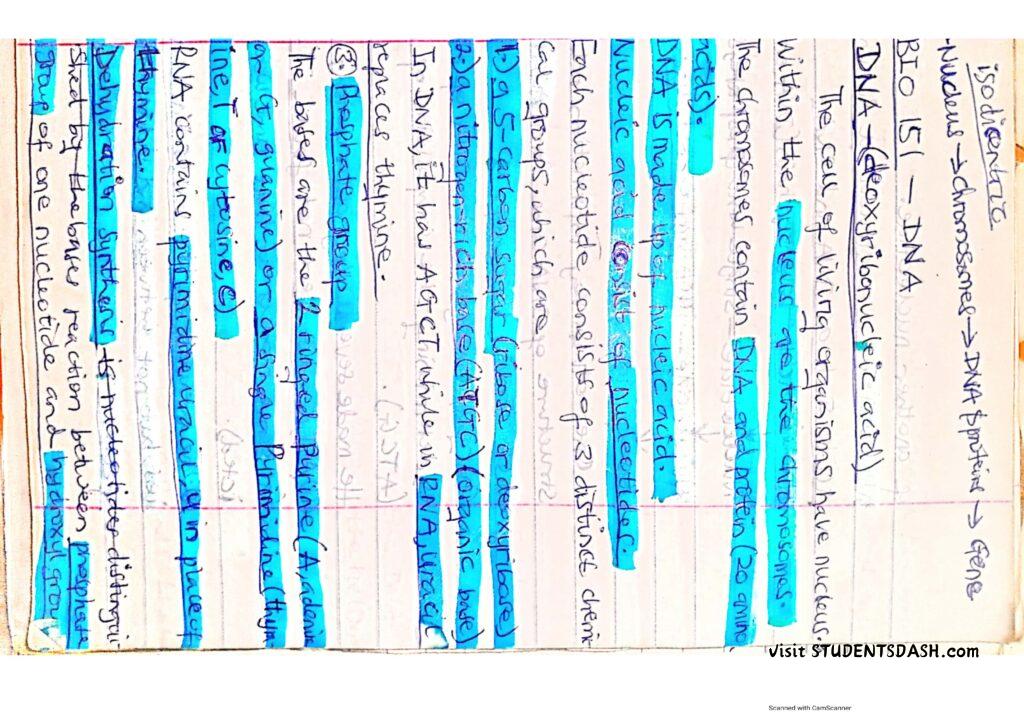 isodicentric
-Nucleus → chromosomes → DNA & protein → Gene
BIO 151 - DNA
DNA - (deoxyribonucleic acid)
The cell of living organisms have nucleus.
Within the nucleus are the chromosomes.
The chromosomes contain DNA and protein (20 amino
acids).
DNA is made up of nucleic acid.
Nucleic acid consist of nucleotides.
Each nucleotide consists of 3 distinct chemi
cal groups, which are
1.) a 5-carbon sugar (ribose or deoxyribose)
2.) a nitrogen-rich base (ATGC) (organic base)
In DNA, it has AGCT while in RNA, Uracil
replaces thymine.
③. Phosphate group
The bases are the 2 ringed Purine (A, adenine
or G, guanine) or a single Pyrimidine (thym
ine, T or cytosine, C)
RNA contains pyrimidine uracil U in place of
thymine.
Dehydration synthesis is distingui
shed by the bases reaction between phosphate
group of one nucleotide and hydroxyl group
Visit STUDENTSDASH.com
Scanned with CamScanner